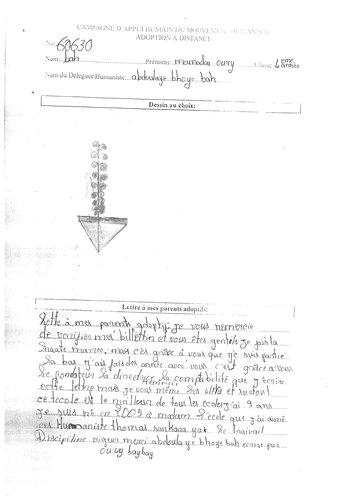 CAMPAGNE D'APPUI HUMAIN DU MOUVEMENT HUMANISTE
ADOPTION A DISTANCE
No: 60630
Nom: bah Prénoms: mamadou oury Classe: 4ème année
Nom du Délégué Humaniste: abdoulaye bhoye bah
Dessin au choix:
Lettre à mes parents adoptifs:
lette à mes parents adoptif je vous remercie
de mei billetin et vous êtes gentels je
haute mais cés grâce à vous que je suis partie
la bas j'ais fais des année avec vous c'est grâce a vous
le fondateur la directrice la comptabilité que j'écrive
cette lettre mais je vous même les et surtout
ce tecole est le meilleur de tous les écoles j'ai 9 ans
je suis né en 2005 à l'école que j'ai aimé
ces Humaniste thomas sankara le travail
Discipline rigueur merci abdoulaye bhoye bah
oury baybay